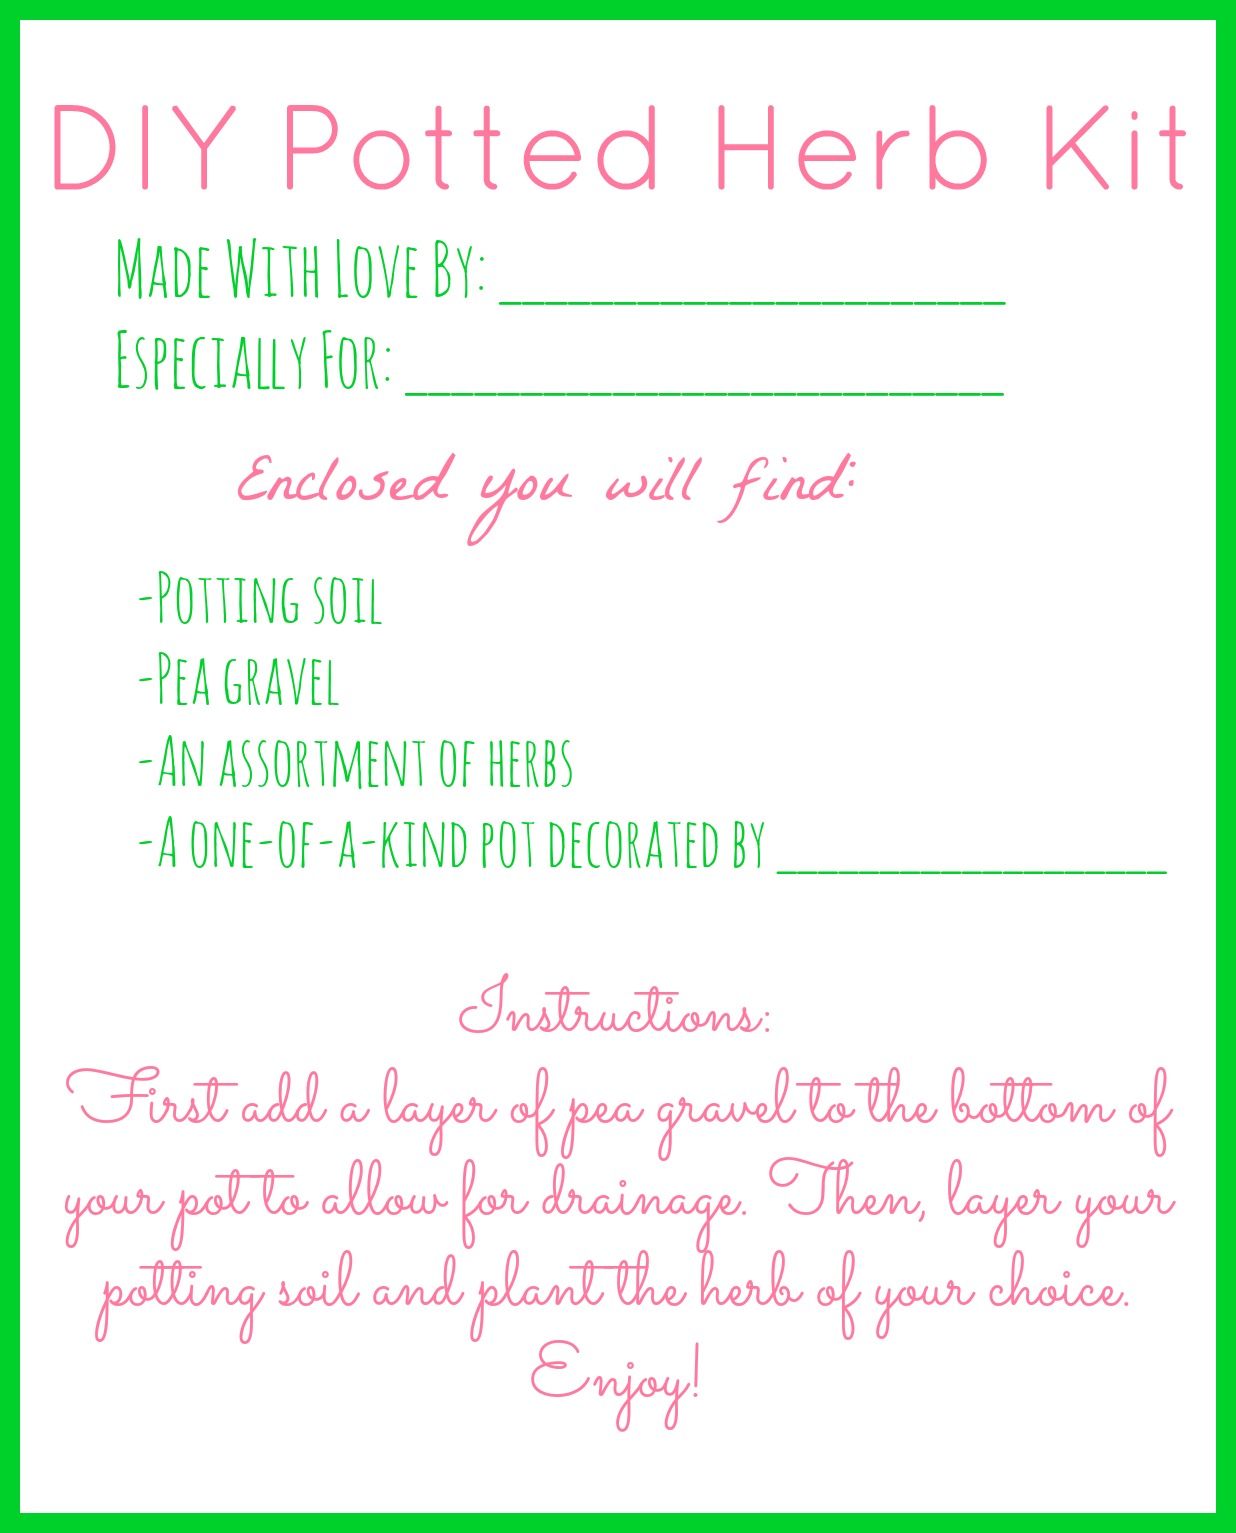 DIY Potted Herb Kit
Made With Love By: ______________________
Especially For: __________________________
Enclosed you will find:
-Potting soil
-Pea gravel
-An assortment of herbs
-A one-of-a-kind pot decorated by ___________________
Instructions:
First add a layer of pea gravel to the bottom of
your pot to allow for drainage. Then, layer your
potting soil and plant the herb of your choice.
Enjoy!